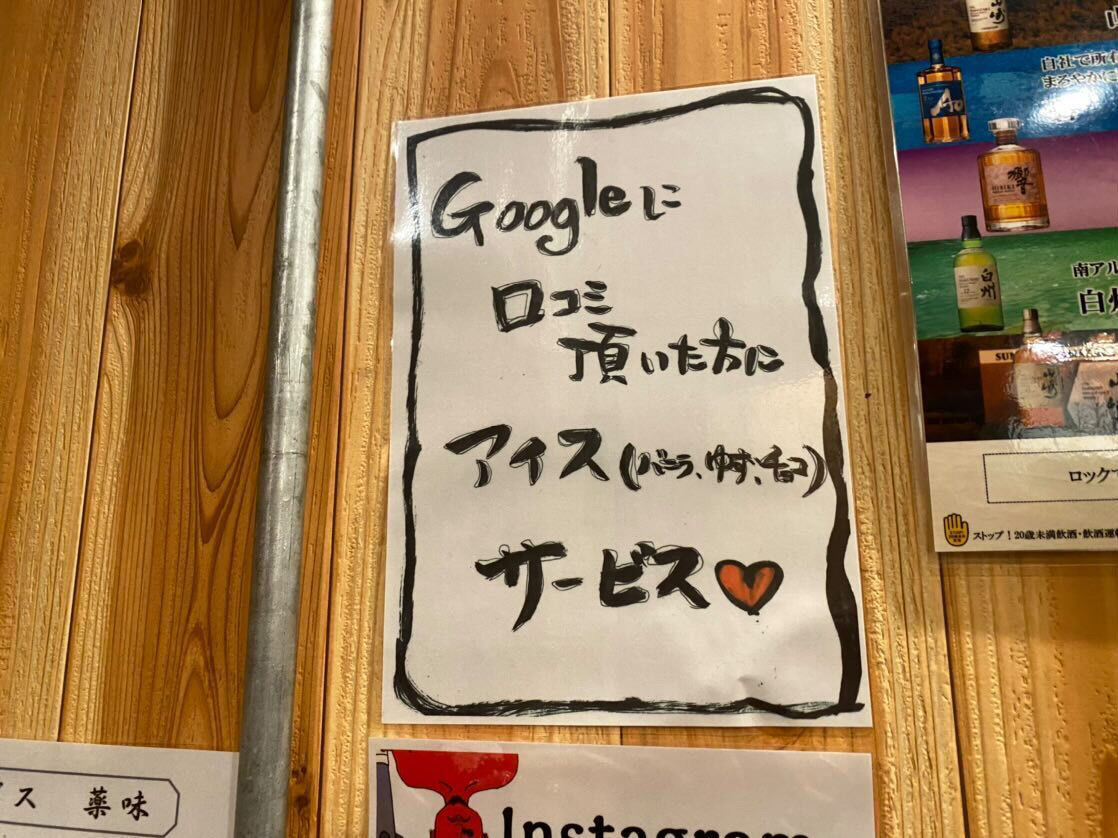 Googleに
口コミ
頂いた方に
アイス(バニラ、ゆず、チョコ)
サービス
自社で所有
まろやかに
Ao
響
HIBIKI
白州
南アル
白州
ロックで
ストップ!20歳未満飲酒・飲酒運
ス 薬味
Instagram